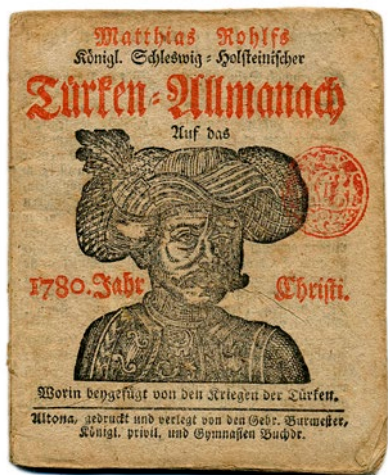 Matthias Rohlfs
Königl. Schleswig-Holsteinischer
Türken-Allmanach
Auf das
1780. Jahr Christi.
Worin beygefügt von den Kriegen der Türken.
Altona, gedruckt und verlegt von den Gebr. Burmester,
Königl. privil. und Gymnasien Buchdr.